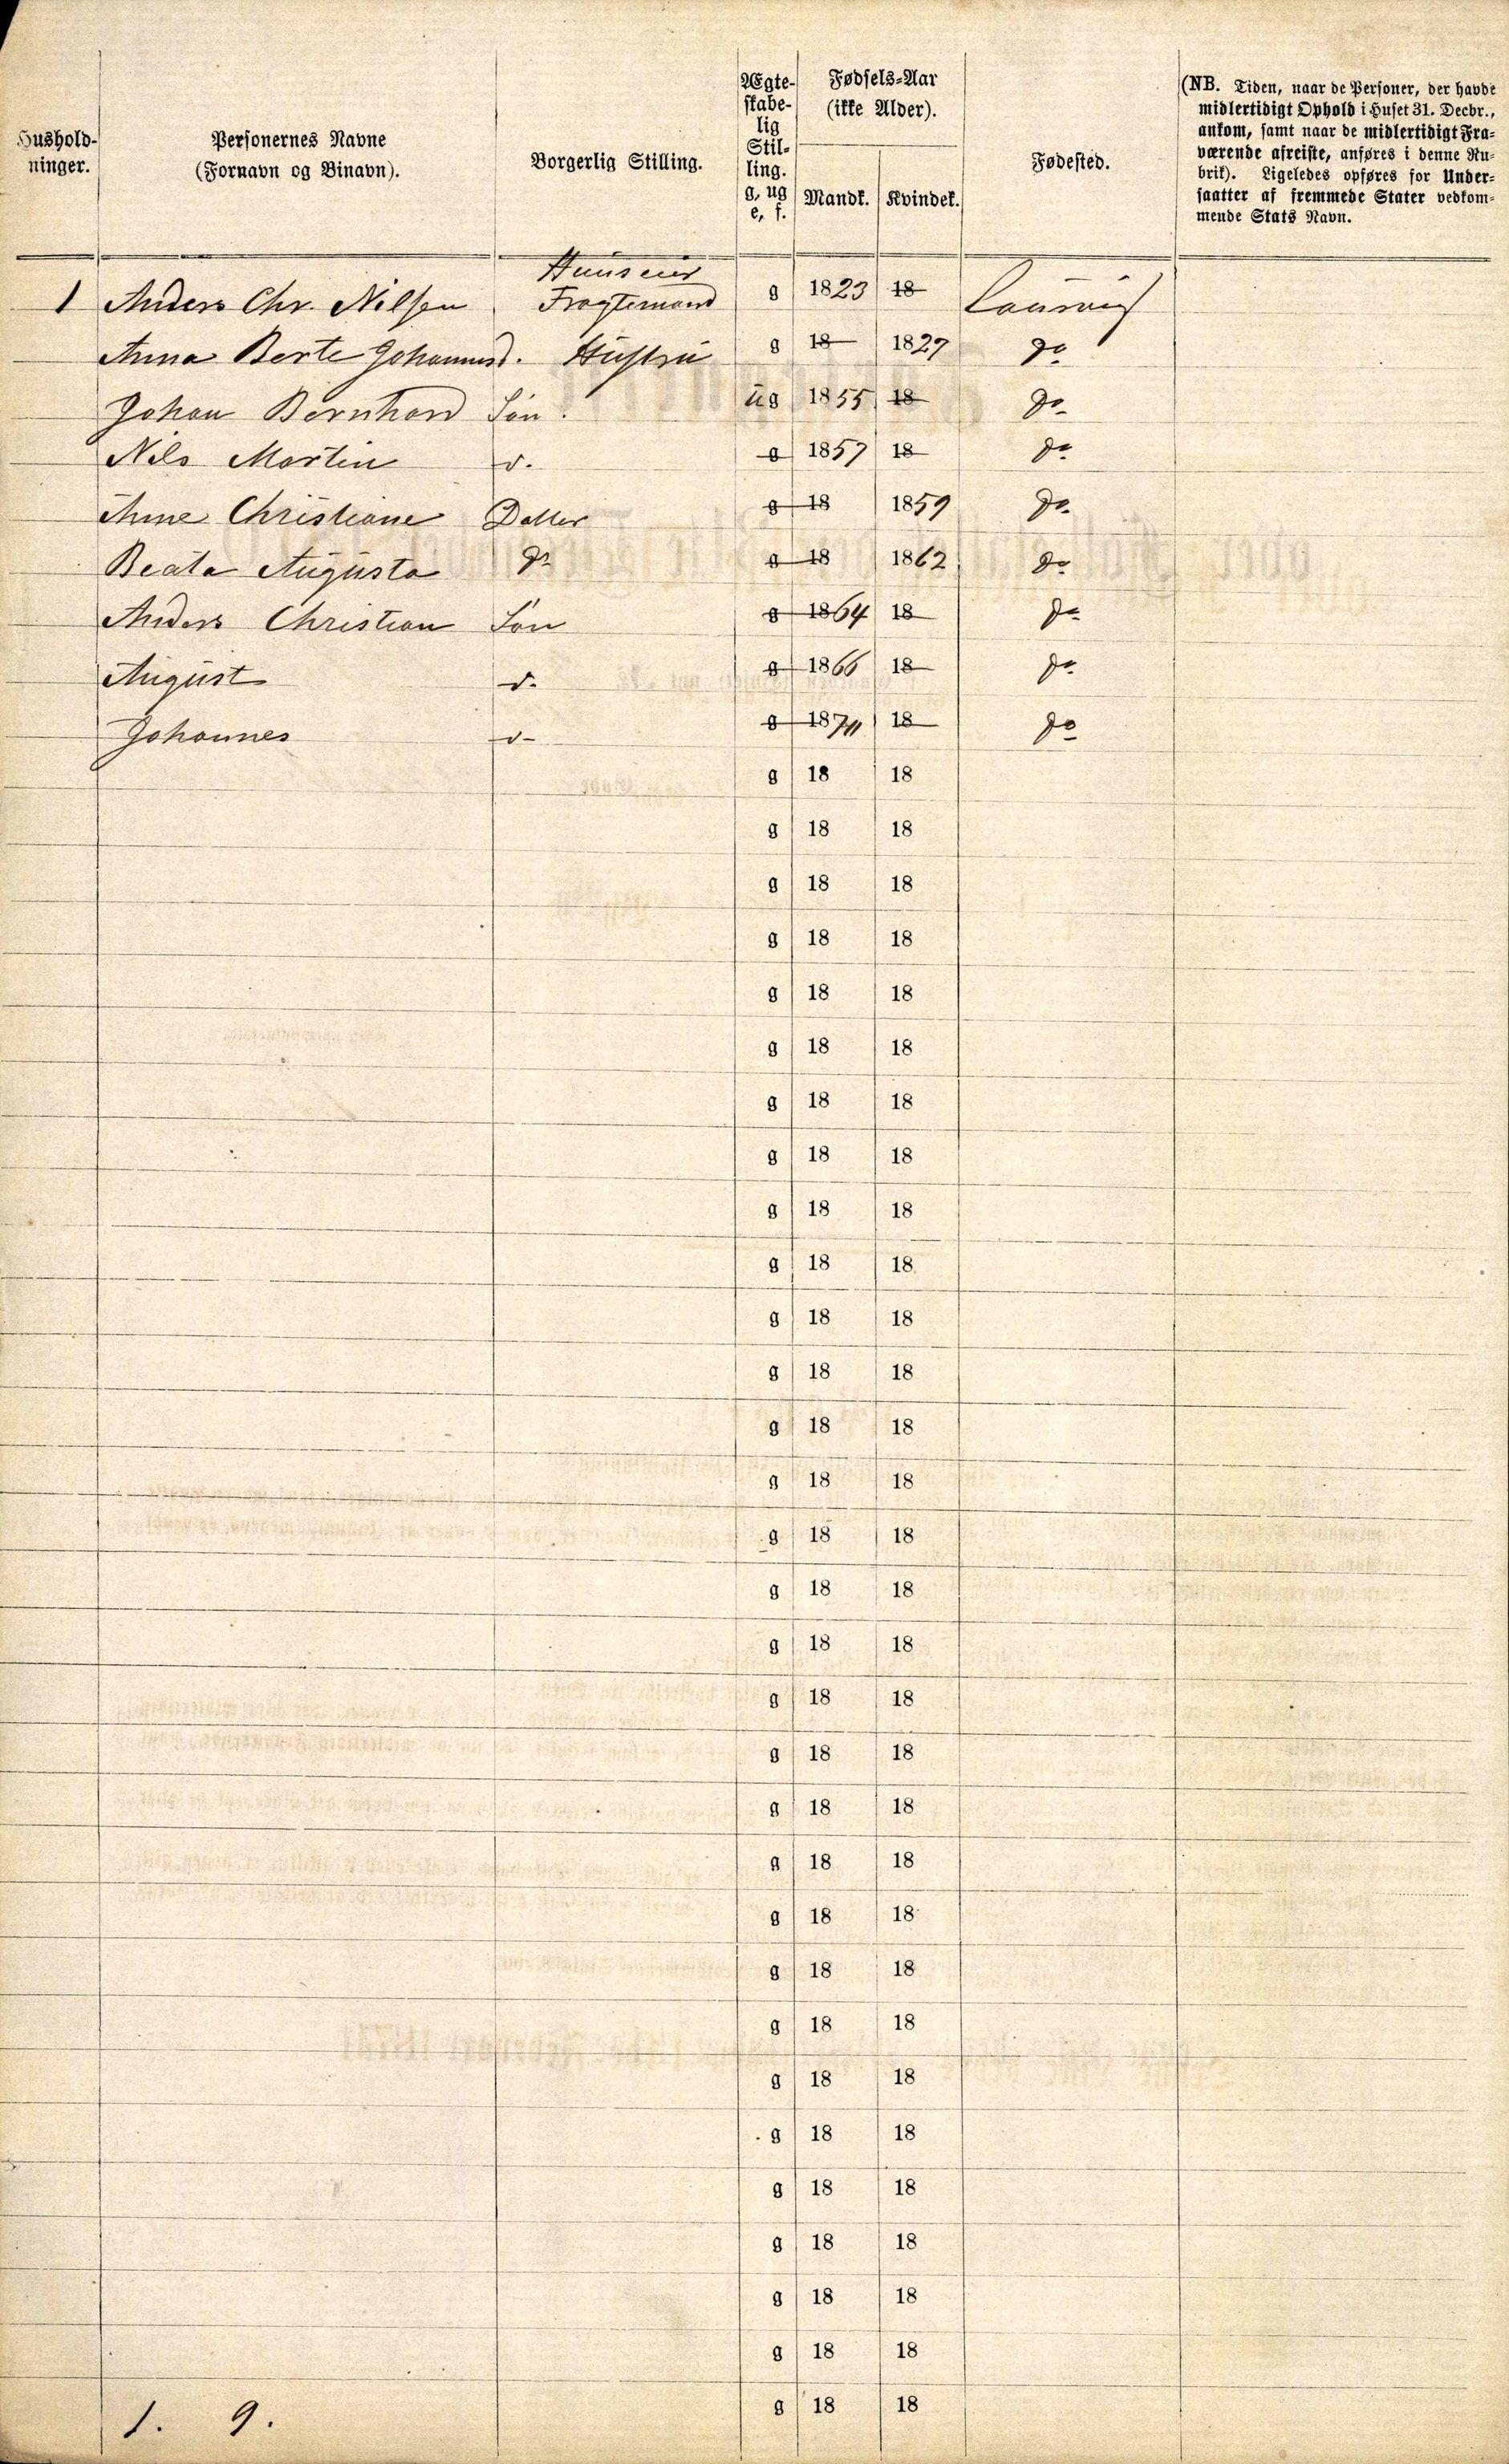 Hushold-
ninger.
Personernes Navne
(Fornavn og Binavn).
Borgerlig Stilling.
Ægte-
skabe-
lig
Stil-
ling.
g, ug
e, f.
Fødsels-Aar
(ikke Alder).
Mandk. Kvindek.
Fødested.
(NB. Tiden, naar de Personer, der havde
midlertidigt Ophold i Huset 31. Decbr.,
ankom, samt naar de midlertidigt Fra-
værende afreiste, anføres i denne Ru-
brik). Ligeledes opføres for Under-
saatter af fremmede Stater vedkom-
mende Stats Navn.
Huuseier
1 Anders Chr. Nilsen Fragtemand g 1823 18 Laurvig
Anna Berte Johannesd. Hustru g 18 1829 do
Johan Bernhard Søn. ug 1855 18 do
Nils Martin d. g 1857 18 do
Anne Christiane Datter g 18 1859 do
Beata Augusta do g 18 1862 do
Anders Christian Søn g 1864 18 do
August d. g 1866 18 do
Johannes d g 1870 18 do
g 18 18
g 18 18
g 18 18
g 18 18
g 18 18
g 18 18
g 18 18
g 18 18
g 18 18
g 18 18
g 18 18
g 18 18
g 18 18
g 18 18
g 18 18
g 18 18
g 18 18
g 18 18
g 18 18
g 18 18
g 18 18
g 18 18
g 18 18
g 18 18
g 18 18
g 18 18
g 18 18
g 18 18
g 18 18
g 18 18
g 18 18
1. 9.